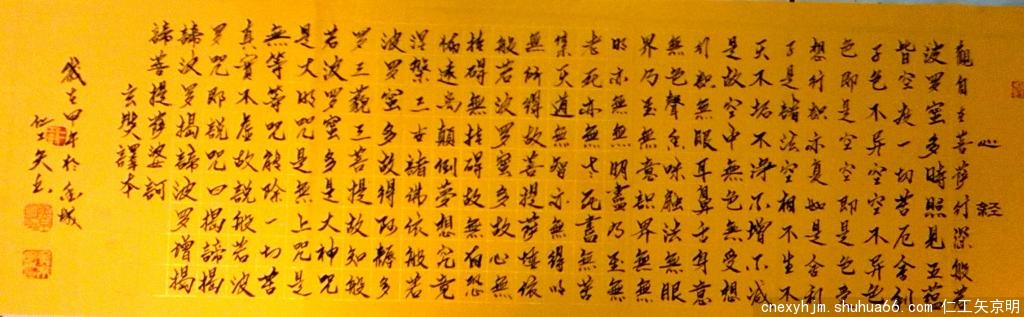 心経
觀自在菩薩行深般若
波罗蜜多時照見五蕴
皆空度一切苦厄舍利
子色不异空空不异色
色即是空空即是色受
想行识亦复如是舍利
子是諸法空相不生不
灭不垢不净不增不减
是故空中無色無受想
行识無眼耳鼻舌身意
無色聲香味触法無眼
界乃至無意识界無無
明亦無無明盡乃至無
老死亦無老死盡無苦
集灭道無智亦無得以
無所得故菩提萨埵依
般若波罗蜜多故心無
挂碍無挂碍故無有恐
怖遠离顛倒夢想究竟
涅槃三世諸佛依般若
波罗蜜多故得阿耨多
罗三藐三菩提故知般
若波罗蜜多是大神咒
是大明咒是無上咒是
無等等咒能除一切苦
真實不虚故説般若波
罗咒即説咒曰揭諦揭
諦波罗揭諦波罗僧揭
諦菩提萨婆訶
玄奘譯本
歲在甲午於金城
仁工矢
cnexyhjm.shuhua66.com 仁工矢京明